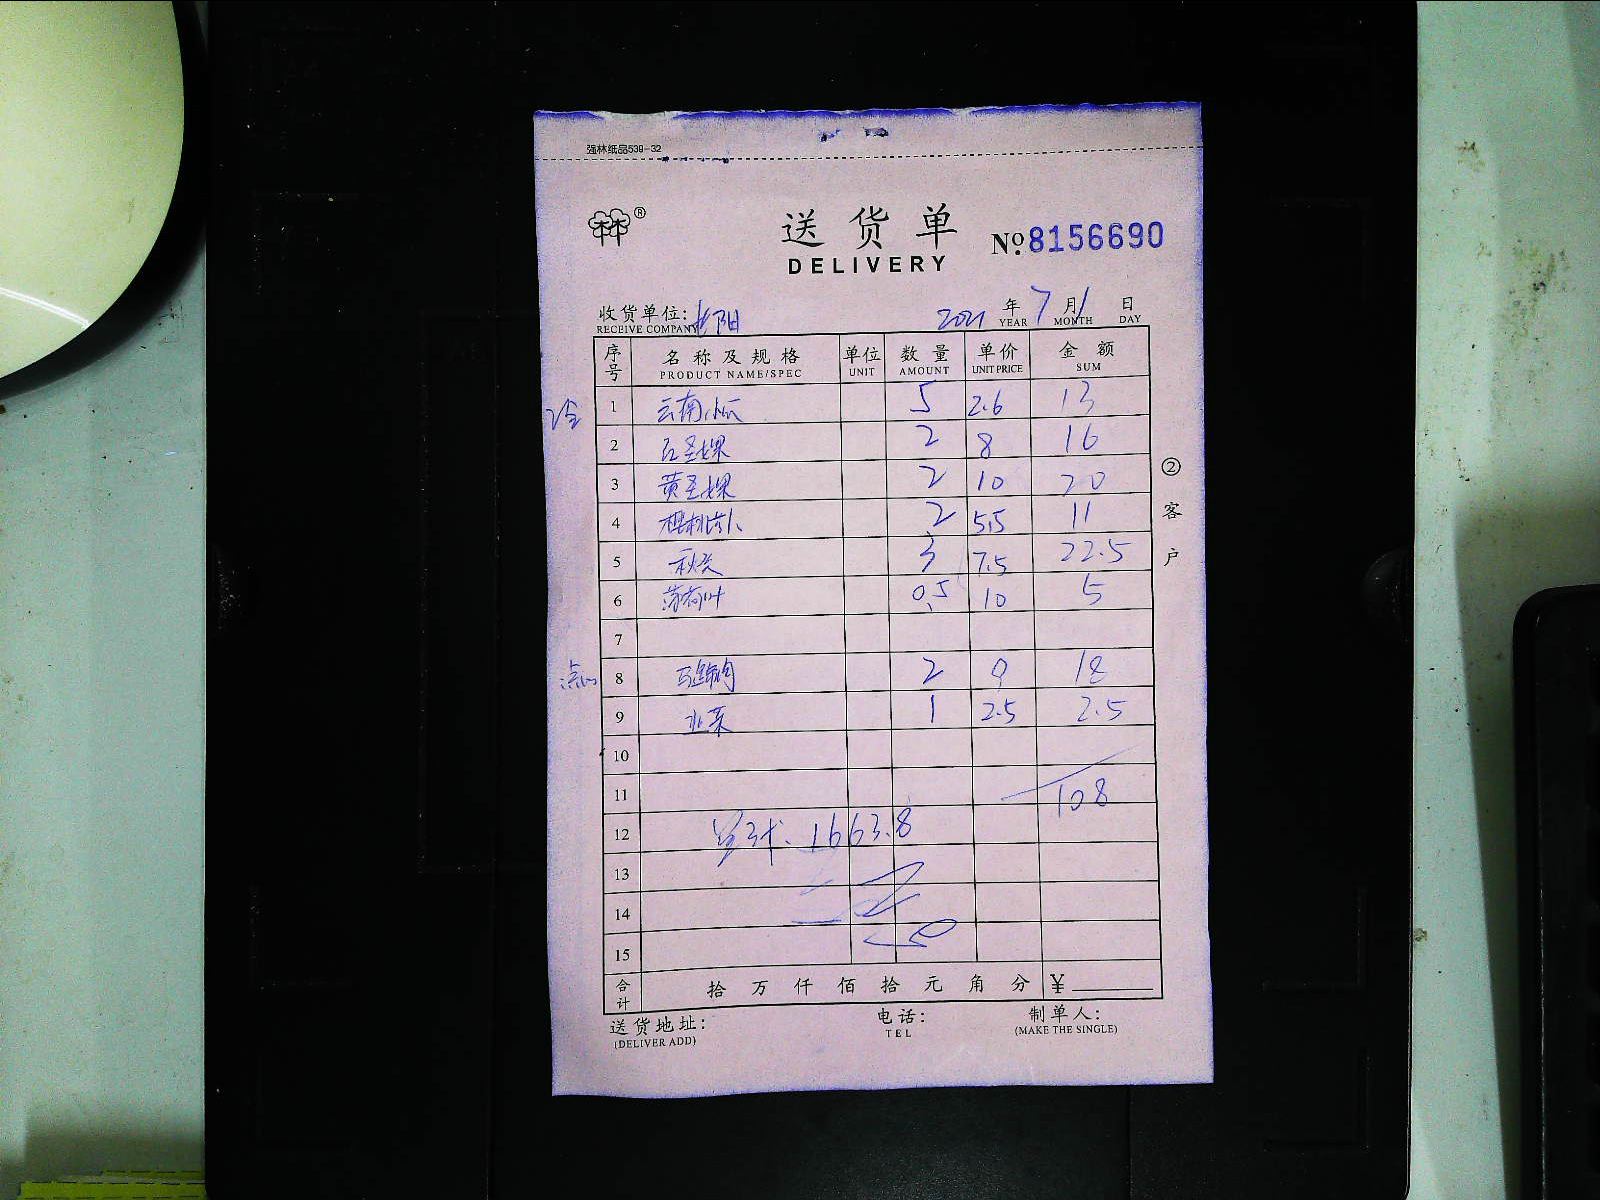 强林纸品539-32
®
送货单 No.8156690
DELIVERY
收货单位: 2021 年 7 月 1 日
RECEIVE COMPANY YEAR MONTH DAY
序号 名称及规格 单位 数量 单价 金额
PRODUCT NAME/SPEC UNIT AMOUNT UNIT PRICE SUM
1 云南小瓜 5 2.6 13
2 红圣女果 2 8 16
3 黄圣女果 2 10 20
4 樱桃萝卜 2 5.5 11
5 秋葵 3 7.5 22.5
6 薄荷叶 0.5 10 5
7
点心 8 2 9 18
9 韭菜 1 2.5 2.5
10
11 108
12 1663.8
13
14
15
合计 拾 万 仟 佰 拾 元 角 分 ¥
送货地址: 电话: 制单人:
(DELIVER ADD) TEL (MAKE THE SINGLE)
② 客户